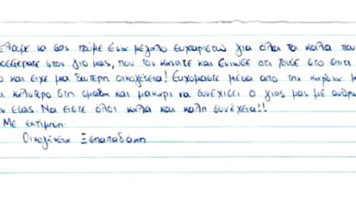 έλαμε να σας πούμε ένα μεγάλο ευχαριστώ για όλα τα καλά που
οσφέρατε στον γιο μας, που τον κάνατε και ένιωθε ότι ζούσε στο σπίτι
υ και είχε μια δεύτερη οικογένεια! Ευχόμαστε μέσα από την καρδιά μ
α καλύτερα στη ομάδα και μακάρι να συνεχίσει ο γιος μας με ανθρω
ν εσάς. Να είστε όλοι καλά και καλή συνέχεια!!
Με εκτίμηση
Οικογένεια Ξεπαπαδάκη